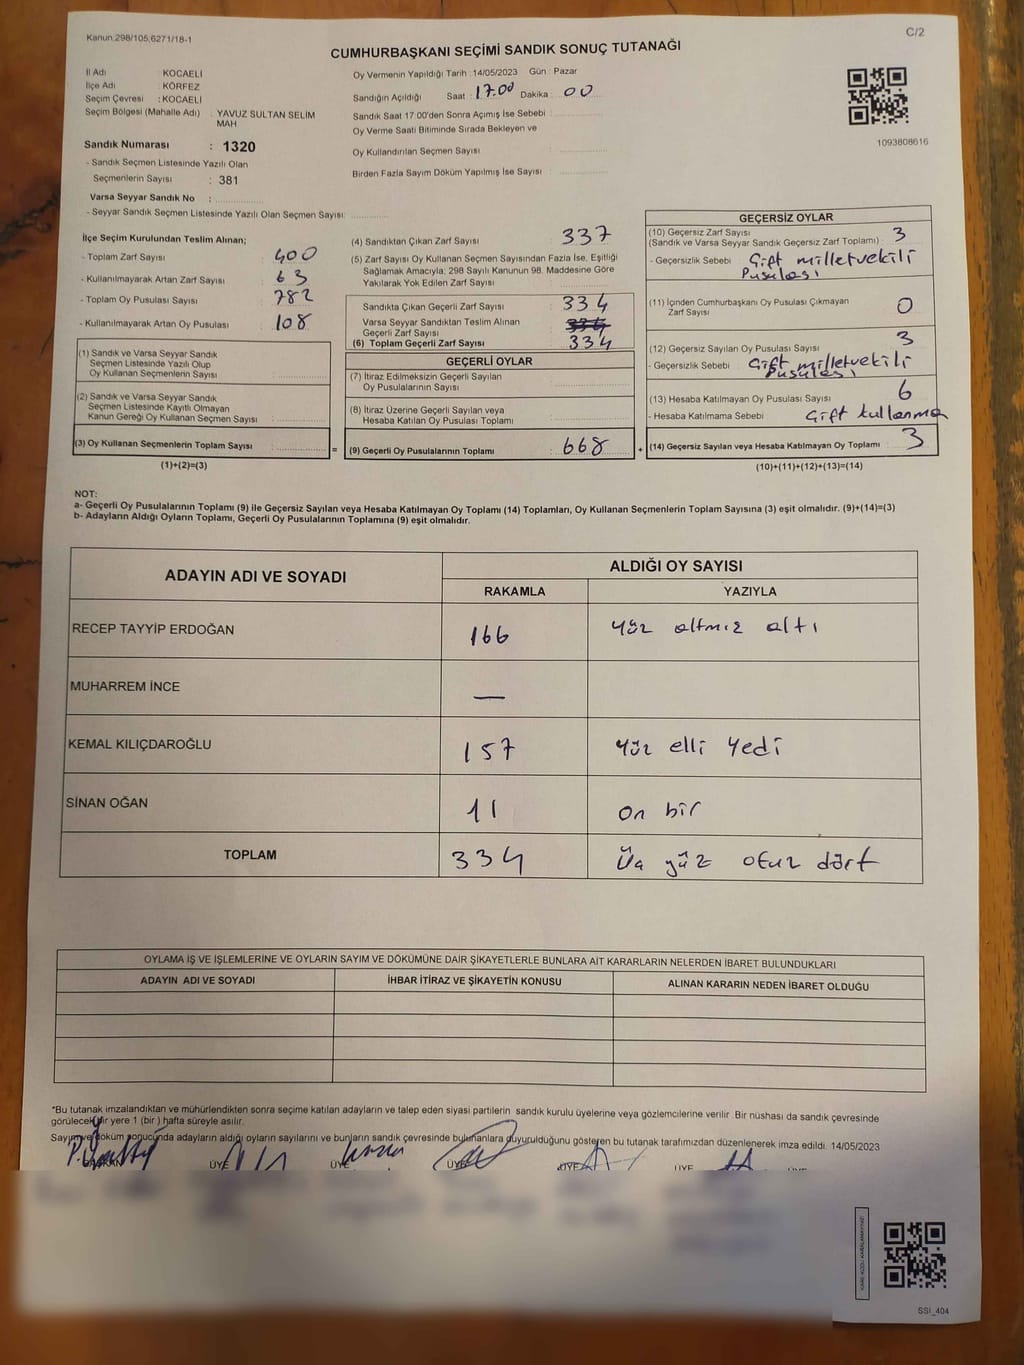 Kanun 298/105,6271/18-1
C/2
CUMHURBAŞKANI SEÇİMİ SANDIK SONUÇ TUTANAĞI
İl Adı KOCAELİ
İlçe Adı : KÖRFEZ
Seçim Çevresi : KOCAELİ
Seçim Bölgesi (Mahalle Adı) : YAVUZ SULTAN SELİM
MAH
Sandık Numarası : 1320
- Sandık Seçmen Listesinde Yazılı Olan
Seçmenlerin Sayısı : 381
Varsa Seyyar Sandık No :
- Seyyar Sandık Seçmen Listesinde Yazılı Olan Seçmen Sayısı:
Oy Vermenin Yapıldığı Tarih : 14/05/2023 Gün : Pazar
Sandığın Açıldığı Saat : 17.00 Dakika : 00
Sandık Saat 17 00'den Sonra Açımış İse Sebebi :
Oy Verme Saati Bitiminde Sırada Bekleyen ve
Oy Kullandırılan Seçmen Sayısı
Birden Fazla Sayım Döküm Yapılmış İse Sayısı :
1093808616
İlçe Seçim Kurulundan Teslim Alınan;
- Toplam Zarf Sayısı : 400
- Kullanılmayarak Artan Zarf Sayısı : 63
- Toplam Oy Pusulası Sayısı : 782
- Kullanılmayarak Artan Oy Pusulası : 108
(1) Sandık ve Varsa Seyyar Sandık
Seçmen Listesinde Yazılı Olup
Oy Kullanan Seçmenlerin Sayısı :
(2) Sandık ve Varsa Seyyar Sandık
Seçmen Listesinde Kayıtlı Olmayan
Kanun Gereği Oy Kullanan Seçmen Sayısı :
(3) Oy Kullanan Seçmenlerin Toplam Sayısı :
(1)+(2)=(3)
(4) Sandıktan Çıkan Zarf Sayısı : 337
(5) Zarf Sayısı Oy Kullanan Seçmen Sayısından Fazla İse, Eşitliği
Sağlamak Amacıyla; 298 Sayılı Kanunun 98. Maddesine Göre
Yakılarak Yok Edilen Zarf Sayısı :
Sandıkta Çıkan Geçerli Zarf Sayısı : 334
Varsa Seyyar Sandıktan Teslim Alınan
Geçerli Zarf Sayısı : 334
(6) Toplam Geçerli Zarf Sayısı : 334
GEÇERLİ OYLAR
(7) İtiraz Edilmeksizin Geçerli Sayılan
Oy Pusulalarının Sayısı :
(8) İtiraz Üzerine Geçerli Sayılan veya
Hesaba Katılan Oy Pusulası Toplamı :
= (9) Geçerli Oy Pusulalarının Toplamı : 668 +
GEÇERSİZ OYLAR
(10) Geçersiz Zarf Sayısı
(Sandık ve Varsa Seyyar Sandık Geçersiz Zarf Toplamı) : 3
- Geçersizlik Sebebi : Çift milletvekili
Pusulası
(11) İçinden Cumhurbaşkanı Oy Pusulası Çıkmayan
Zarf Sayısı : 0
(12) Geçersiz Sayılan Oy Pusulası Sayısı : 3
- Geçersizlik Sebebi : Çift milletvekili
Pusulası
(13) Hesaba Katılmayan Oy Pusulası Sayısı : 6
- Hesaba Katılmama Sebebi : Çift kullanma
(14) Geçersiz Sayılan veya Hesaba Katılmayan Oy Toplamı : 3
(10)+(11)+(12)+(13)=(14)
NOT:
a- Geçerli Oy Pusulalarının Toplamı (9) ile Geçersiz Sayılan veya Hesaba Katılmayan Oy Toplamı (14) Toplamları, Oy Kullanan Seçmenlerin Toplam Sayısına (3) eşit olmalıdır. (9)+(14)=(3)
b- Adayların Aldığı Oyların Toplamı, Geçerli Oy Pusulalarının Toplamına (9) eşit olmalıdır.
ADAYIN ADI VE SOYADI
ALDIĞI OY SAYISI
RAKAMLA YAZIYLA
RECEP TAYYİP ERDOĞAN 166 Yüz altmız altı
MUHARREM İNCE —
KEMAL KILIÇDAROĞLU 157 Yüz elli Yedi
SİNAN OĞAN 11 on bir
TOPLAM 334 Üç yüz otuz dört
OYLAMA İŞ VE İŞLEMLERİNE VE OYLARIN SAYIM VE DÖKÜMÜNE DAİR ŞİKAYETLERLE BUNLARA AİT KARARLARIN NELERDEN İBARET BULUNDUKLARI
ADAYIN ADI VE SOYADI İHBAR İTİRAZ VE ŞİKAYETİN KONUSU ALINAN KARARIN NEDEN İBARET OLDUĞU
*Bu tutanak imzalandıktan ve mühürlendikten sonra seçime katılan adayların ve talep eden siyasi partilerin sandık kurulu üyelerine veya gözlemcilerine verilir Bir nüshası da sandık çevresinde
görülecek bir yere 1 (bir ) hafta süreyle asılır.
Sayım ve döküm sonucunda adayların aldığı oyların sayılarını ve bunların sandık çevresinde bulunanlara duyurulduğunu gösteren bu tutanak tarafımızdan düzenlenerek imza edildi. 14/05/2023
BAŞKAN ÜYE ÜYE ÜYE ÜYE ÜYE ÜYE
SSI_404